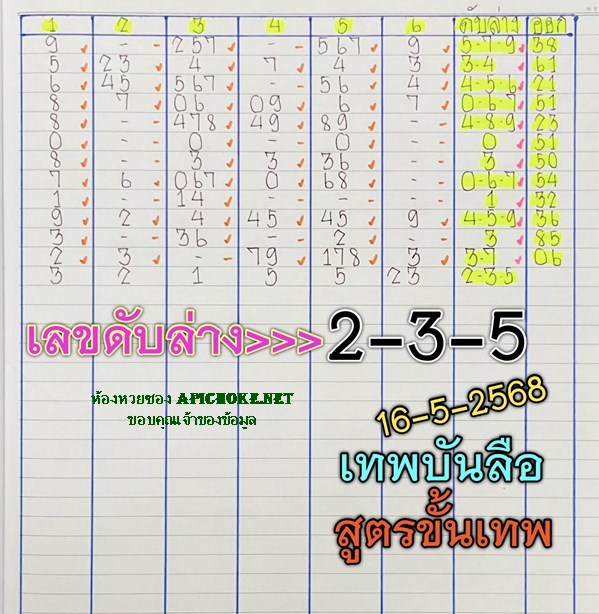 1 2 3 4 5 6 ดับล่าง ออก
9 - 257 - 567 9 5-7-9 38
5 23 4 7 4 3 3-4 61
6 45 567 - 56 4 4-5-6 21
8 7 06 09 6 7 0-6-7 51
8 - 478 49 89 - 4-8-9 23
0 - 0 - 0 - 0 51
8 - 3 3 36 - 3 50
7 6 067 0 68 - 0-6-7 54
1 - 14 - - - 1 32
9 2 4 45 45 9 4-5-9 36
3 - 36 - 2 - 3 85
2 3 - 79 178 3 3-7 06
3 2 1 5 5 23 2-3-5
เลขดับล่าง>>> 2-3-5
ห้องหวยซอง APICHOKE.NET
ขอบคุณเจ้าของข้อมูล
16-5-2568
เทพบันลือ
สูตรขั้นเทพ